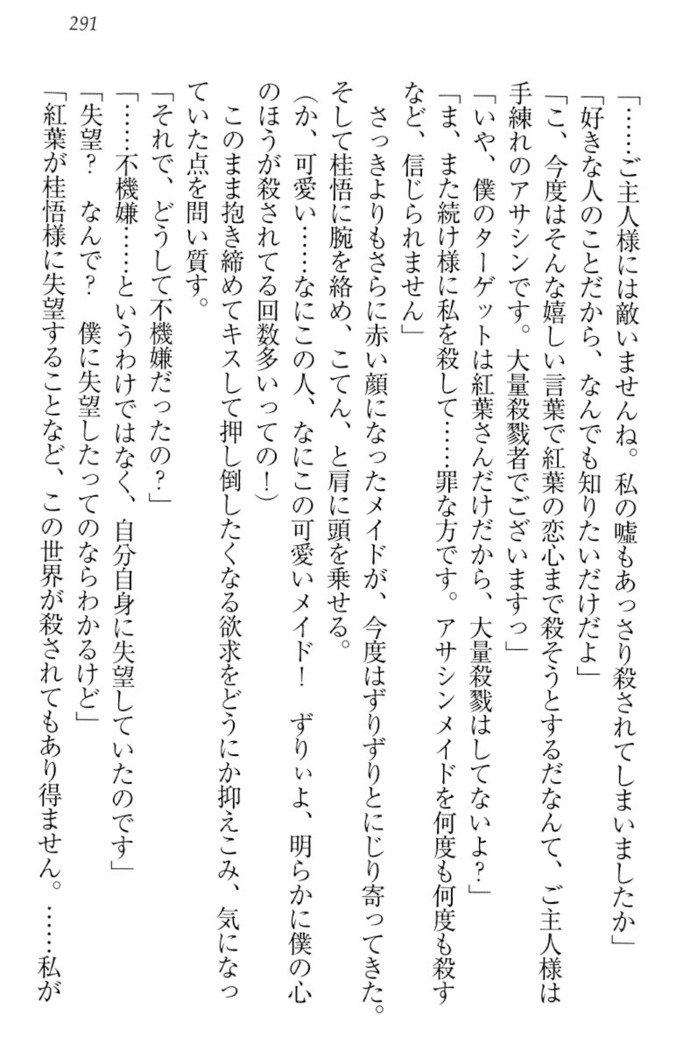 291
「……ご主人様には敵いませんね。私の嘘もあっさり殺されてしまいましたか」
「好きな人のことだから、なんでも知りたいだけだよ」
「こ、今度はそんな嬉しい言葉で紅葉の恋心まで殺そうとするだなんて、ご主人様は
手練れのアサシンです。大量殺戮者でございますっ」
「いや、僕のターゲットは紅葉さんだけだから、大量殺戮はしてないよ？」
「ま、また続け様に私を殺して……罪な方です。アサシンメイドを何度も何度も殺す
など、信じられません」
さっきよりもさらに赤い顔になったメイドが、今度はずりずりとにじり寄ってきた。
そして桂悟に腕を絡め、こてん、と肩に頭を乗せる。
（か、可愛い……なにこの人、なにこの可愛いメイド！　ずりぃよ、明らかに僕の心
のほうが殺されてる回数多いっての！）
このまま抱き締めてキスして押し倒したくなる欲求をどうにか抑えこみ、気になっ
ていた点を問い質す。
「それで、どうして不機嫌だったの？」
「……不機嫌……というわけではなく、自分自身に失望していたのです」
「失望？　なんで？　僕に失望したってのならわかるけど」
「紅葉が桂悟様に失望することなど、この世界が殺されてもあり得ません。……私が